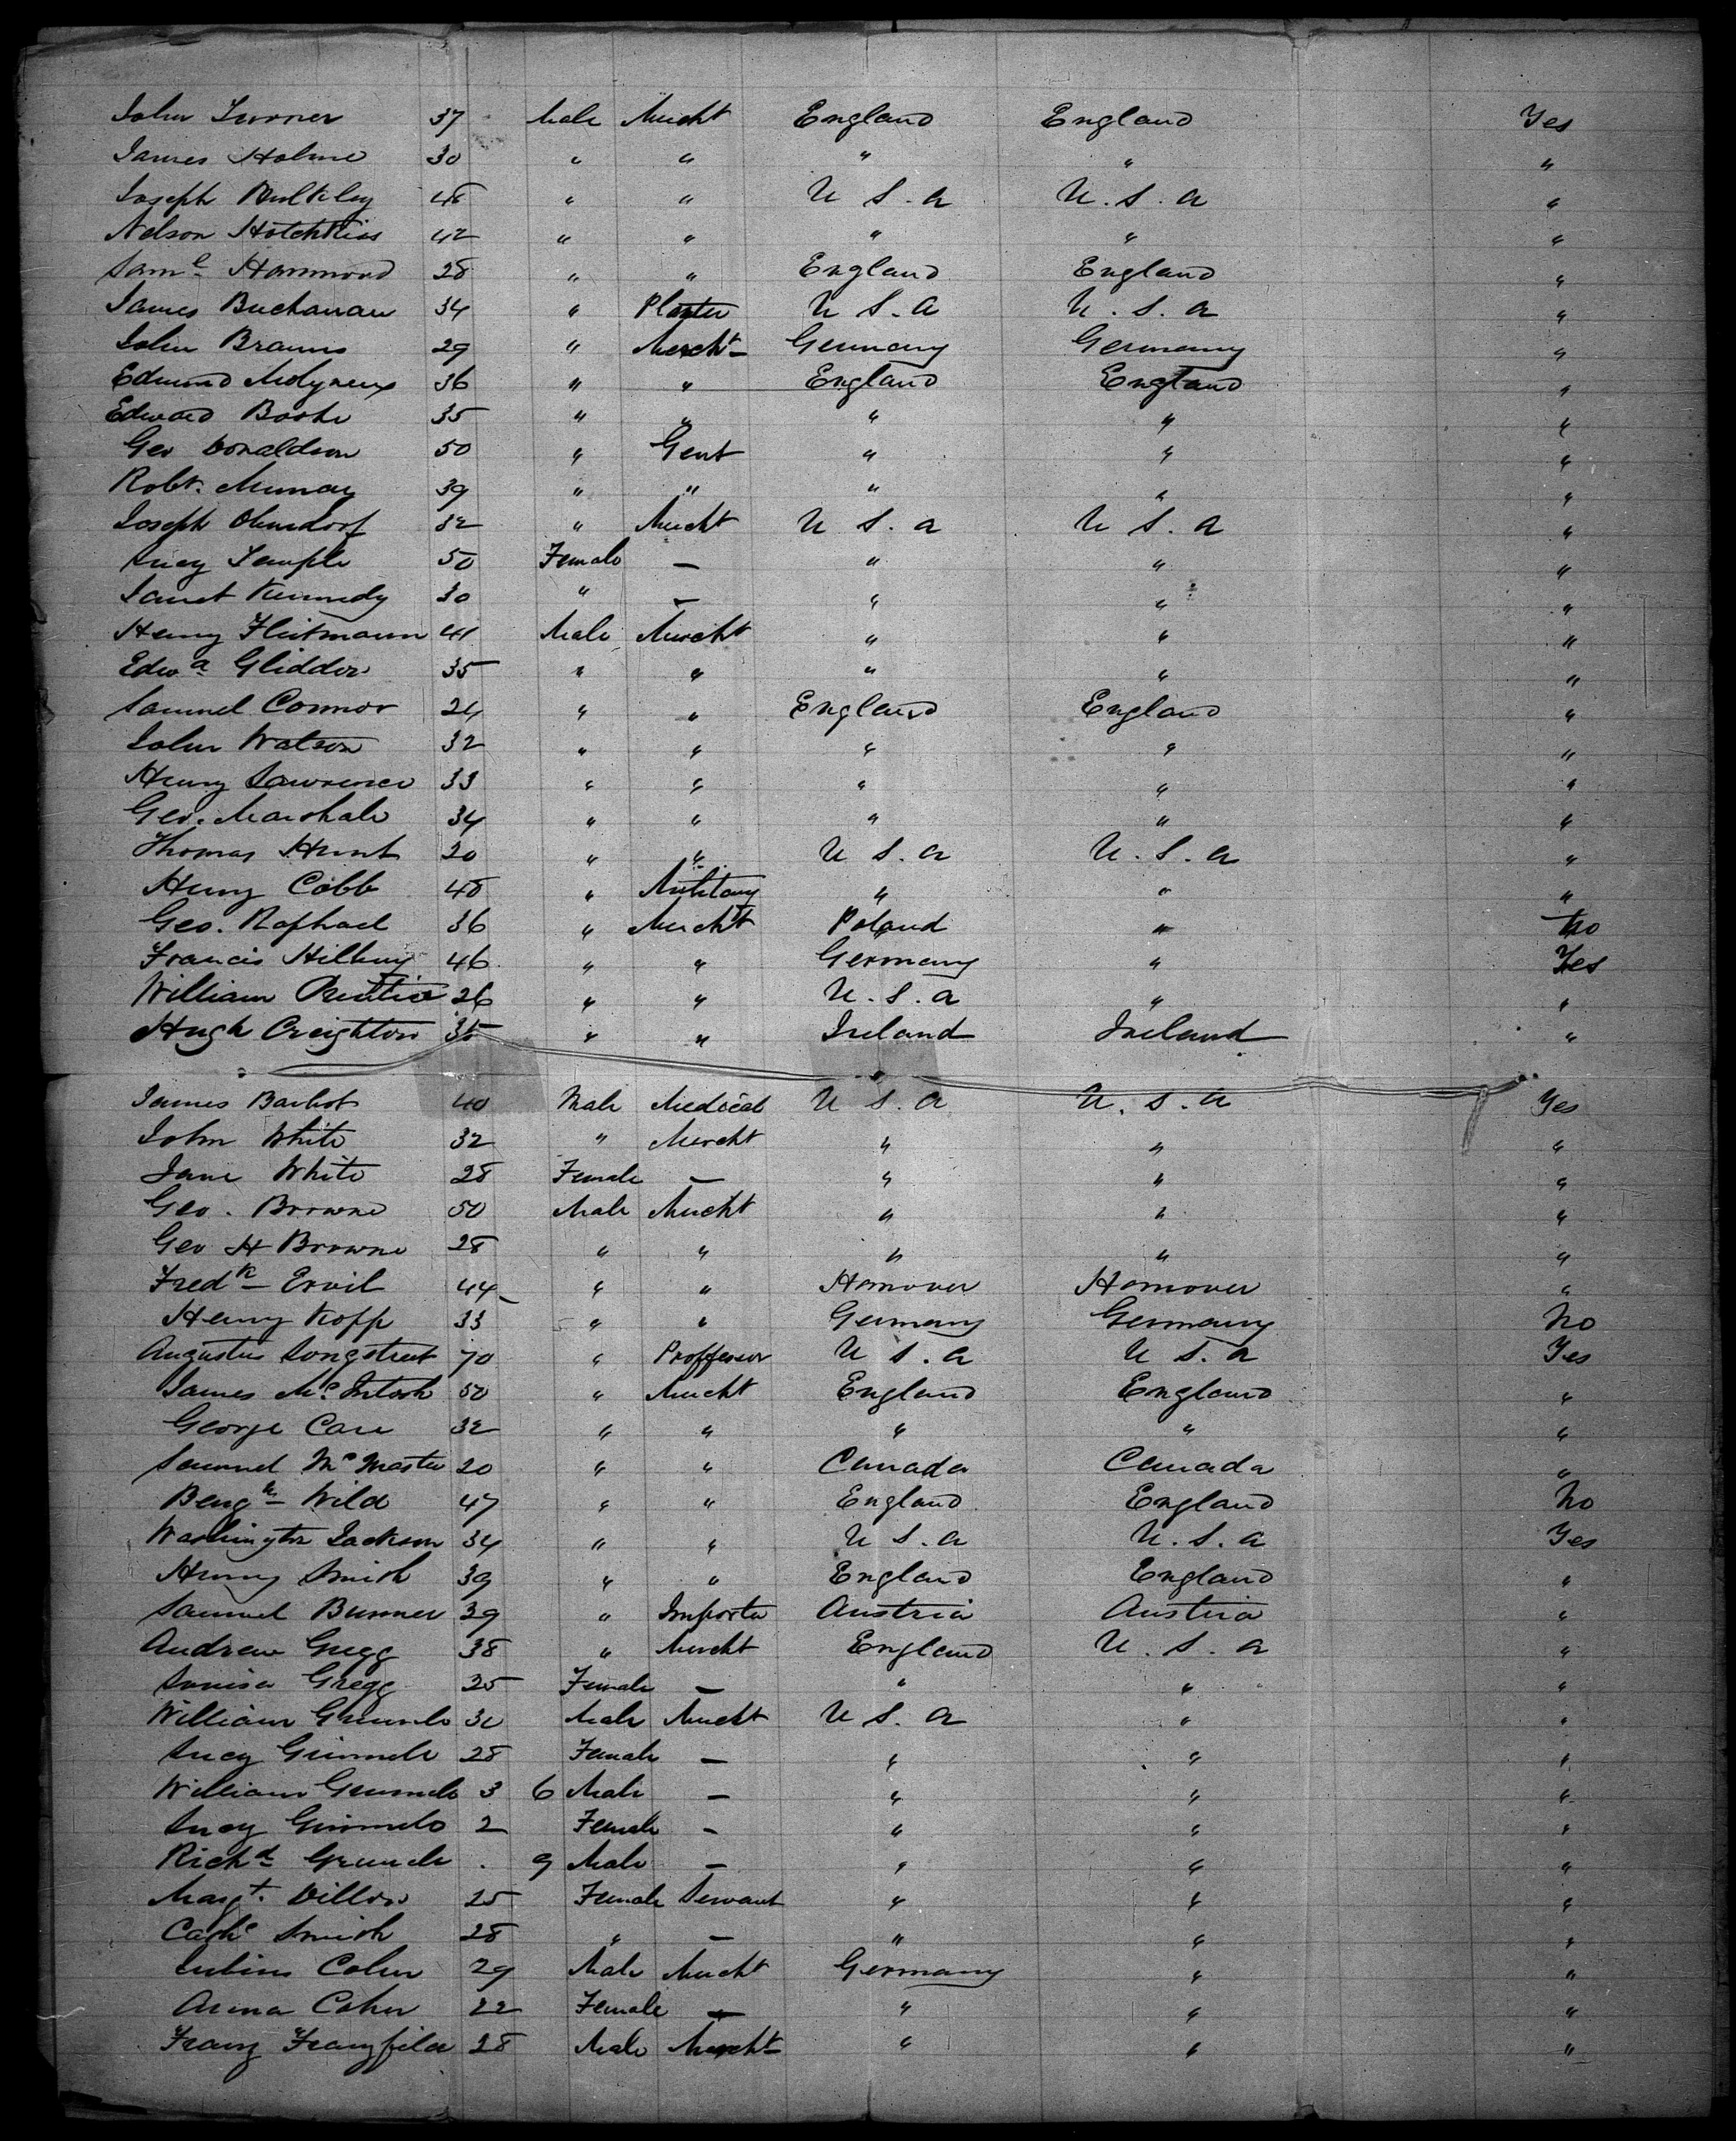 John Turner 37 Male Mercht England England Yes
James Holme 30 " " " " "
Joseph Bulkley 48 " " U S. a U. S. a "
Nelson Hotchkiss 42 " " " " "
Saml Hammond 28 " " England England "
James Buchanan 34 " Planter U S. a U. S. a "
John Brauns 29 " Mercht Germany Germany "
Edmund Molyneux 36 " " England England "
Edward Boothe 35 " " " " "
Geo Donaldson 50 " Gent " " "
Robt. Murray 39 " " " " "
Joseph Ohmdorf 32 " Mercht U S. a U S. a "
Lucy Temple 50 Female – " " "
Janet Kennedy 30 " – " " "
Henry Fleitmann 41 Male Mercht " " "
Edwd Gliddon 35 " " " " "
Samuel Connor 24 " " England England "
John Watson 32 " " " " "
Henry Lawrence 33 " " " " "
Geo. Marshall 34 " " " " "
Thomas Hunt 20 " " U S. a U. S. a "
Henry Cobb 48 " Military " " "
Geo. Raphael 36 " Mercht Poland " No
Francis 46 " " Germany " Yes
William Prentice 26 " " U. S. a " "
Hugh Creighton 35 " " Ireland Ireland "
James Barbot 40 Male Medical U S. a U. S. a Yes
John White 32 " Mercht " " "
Jane White 28 Female – " " "
Geo. Browne 50 Male Mercht " " "
Geo H Browne 28 " " " " "
Fredk Ervil 44 " " Hanover Hanover "
Henry Kopp 33 " " Germany Germany No
Augustus Longstreet 70 " Proffessor U S. a U S. a Yes
James McIntosh 50 " Mercht England England "
George Care 32 " " " " "
Samuel McMaster 20 " " Canada Canada "
Wild 47 " " England England No
Washington Jackson 34 " " U S. a U. S. a Yes
Henry Smith 39 " " England England "
Samuel Bunner 39 " Importer Austria Austria "
Andrew Gregg 38 " Mercht England U. S. a "
Louisa Gregg 25 Female – " " "
William 30 Male Mercht U S. a " "
Lucy 28 Female – " " "
William 3 6 Male – " " "
Lucy 2 Female – " " "
Richd . 9 Male – " " "
Margt. Dillon 25 Female Servant " " "
Cathe Smith 28 " – " " "
Julius Cohn 29 Male Mercht Germany " "
Anna Cohn 22 Female – " " "
Franz 28 Male Mercht " " "